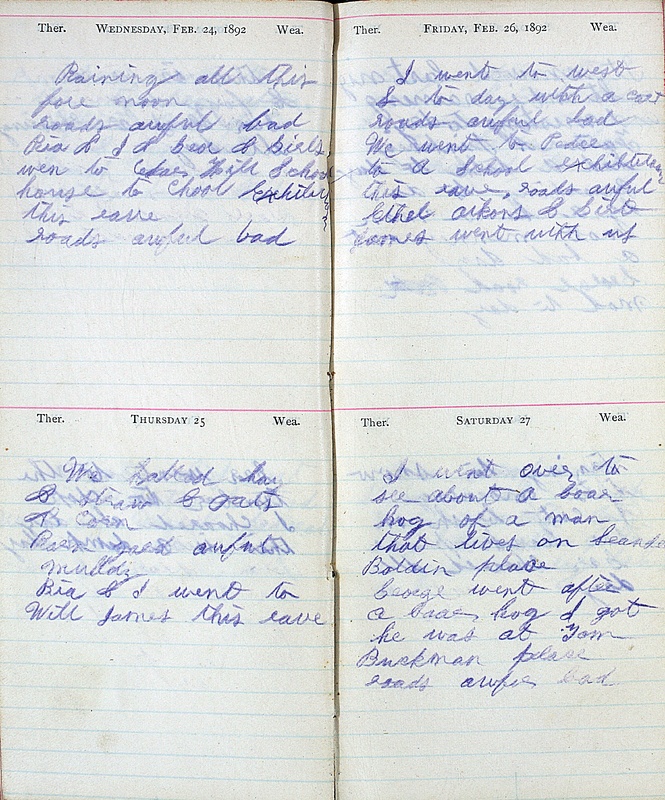 Ther. WEDNESDAY, FEB. 24, 1892 Wea.
Raining all this
fore noon
roads awful bad
Bia & I & Bea & Birls
wen to Hill School
house to Chool Exhibit
this eave
roads awful bad
Ther. THURSDAY 25 Wea.
We haled hay
& Straw & oats
& Corn
awful
muddy
Bia & I went to
Will James this eave
Ther. FRIDAY, FEB. 26, 1892 Wea.
I went to west
to day with a
roads awful bad
We went to
to a School exhibition
this eave, roads awful
Ethel &
James went with us
Ther. SATURDAY 27 Wea.
I went over to
see about a boar
hog of a man
that lives on
Boldin place
George went after
a boar hog I got
he was at Tom
Buckman place
roads awful bad